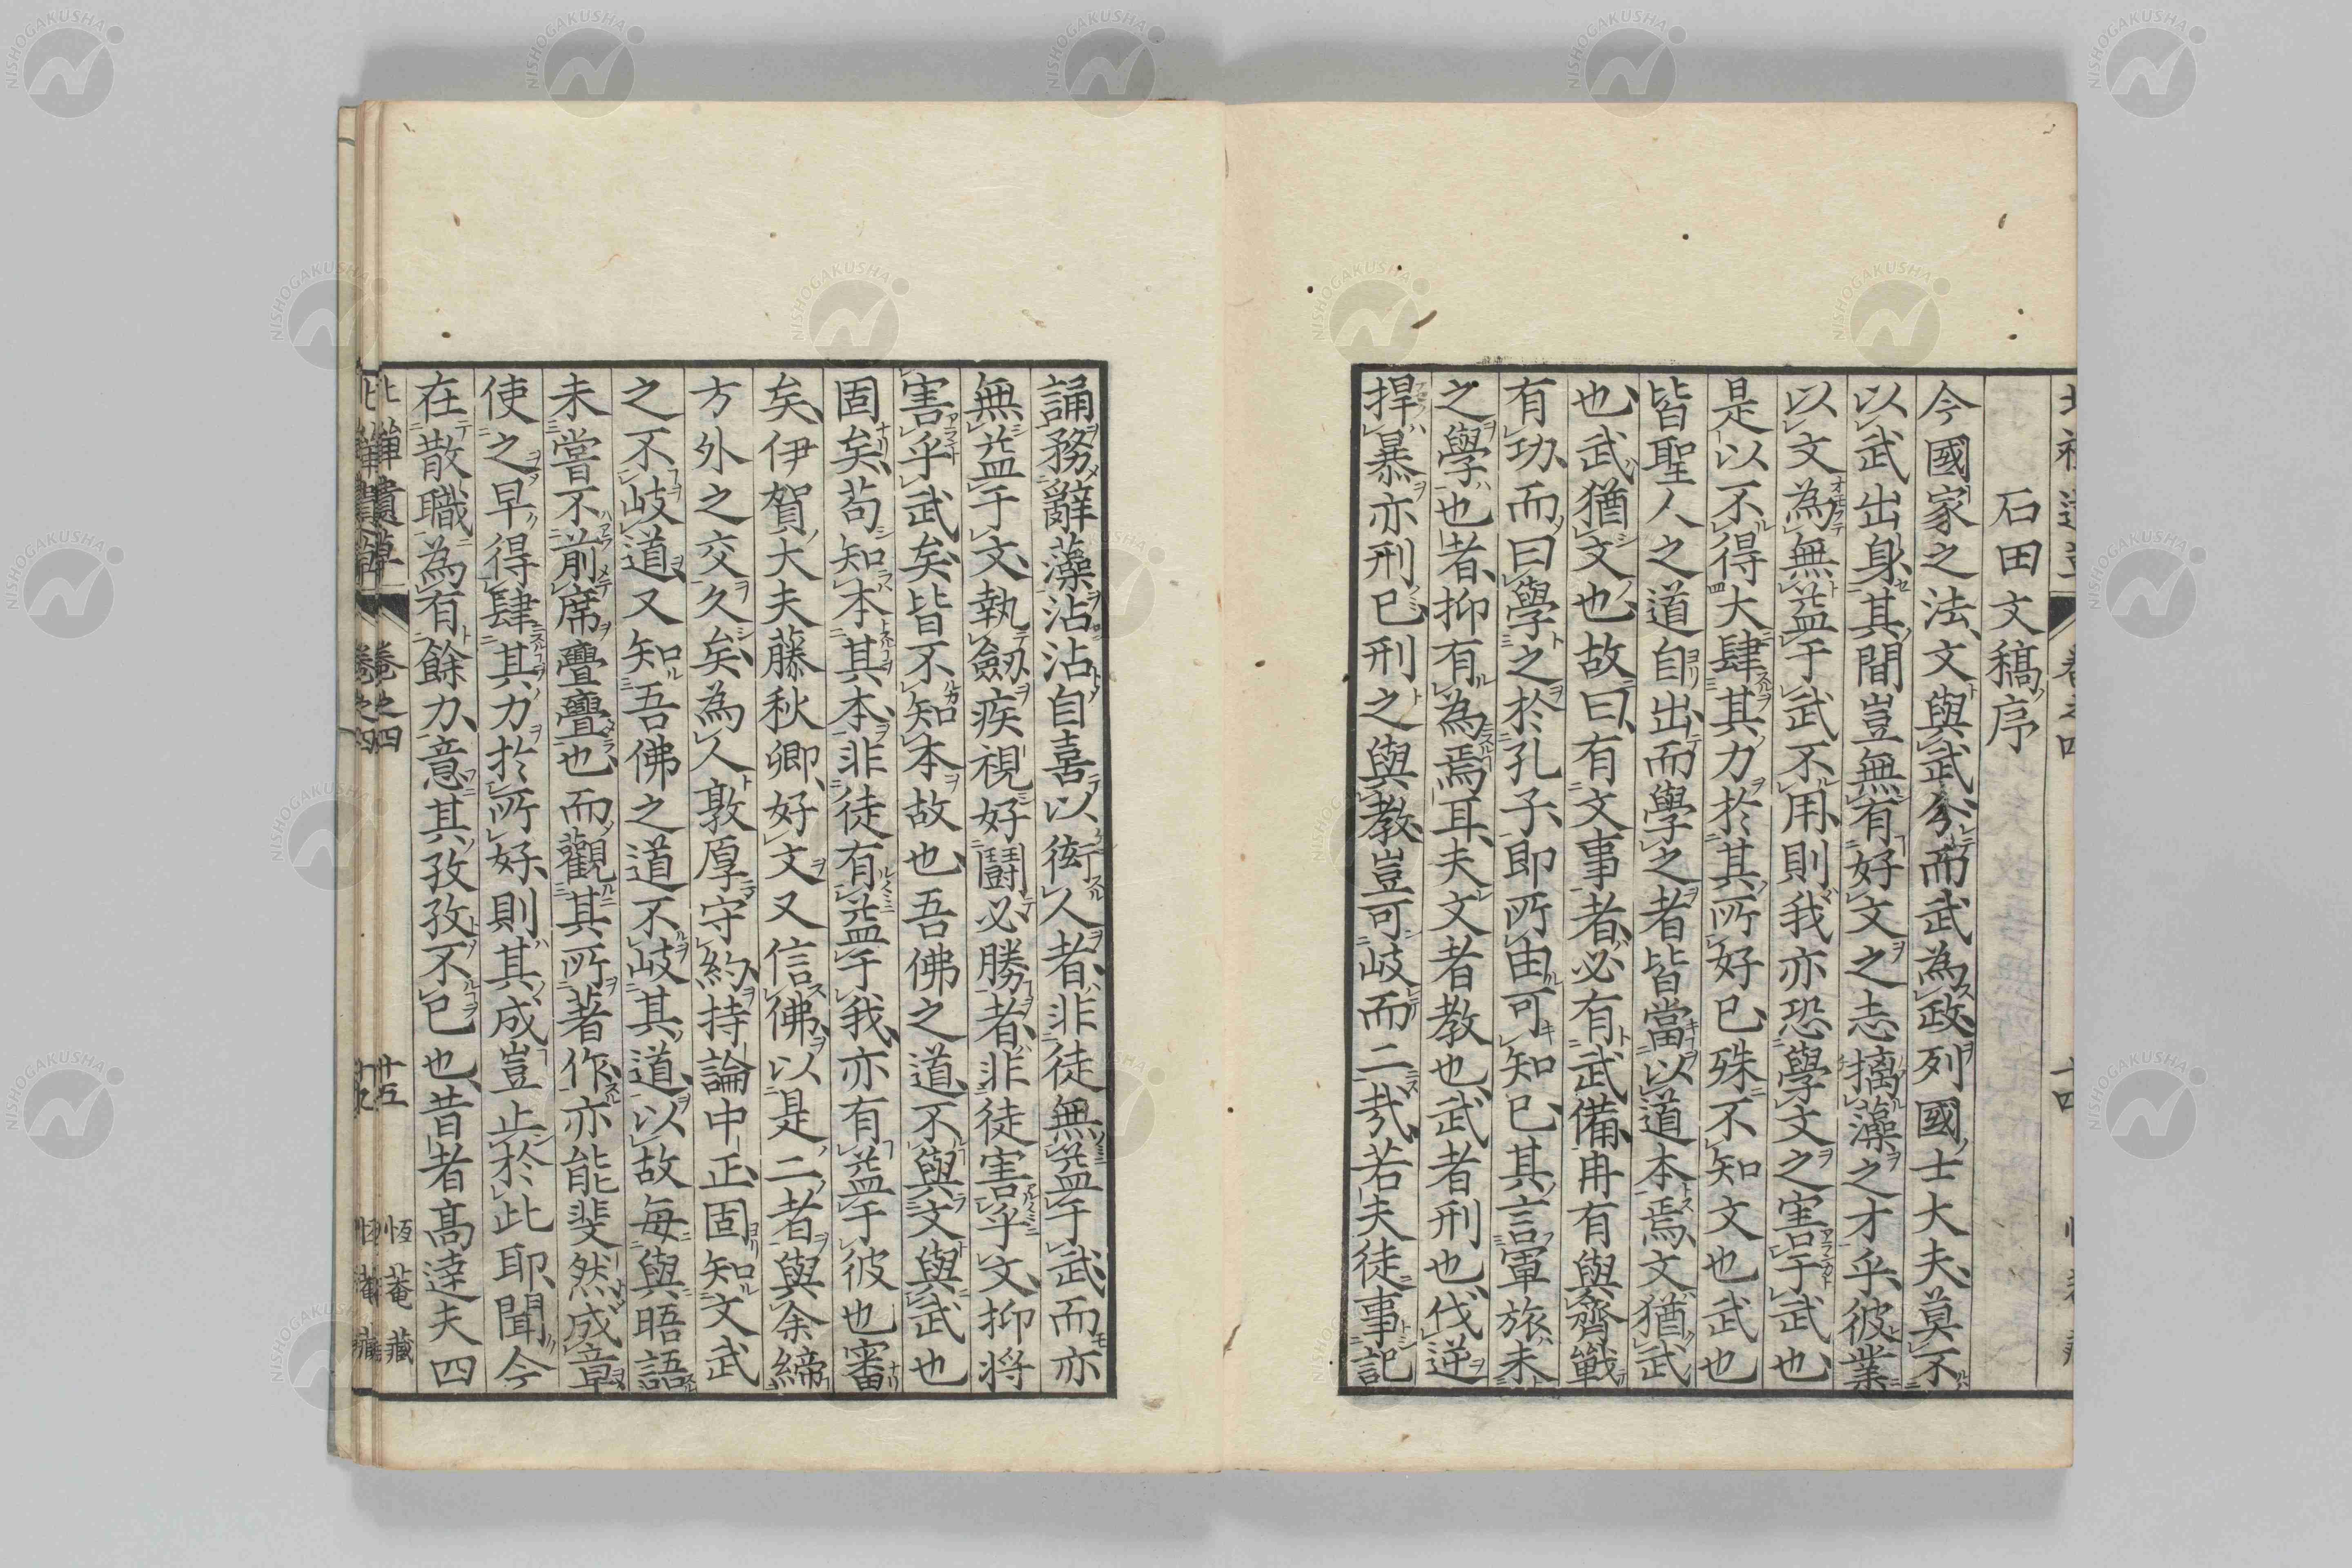 石田文稿序
今國家之法、文與武分、而武為政、列國士大夫、莫不
以武出身、其間豈無有好文之志摛藻之才乎、彼業
以文為無益于武不用、則我亦恐學文之害于武也、
是以不得大肆其力於其所好已殊不知文也武也
皆聖人之道自出、而學之者皆當以道本焉、文猶武
也、武猶文也、故曰、有文事者、必有武備、冉有與齊戰
有功、而曰學之於孔子、即所由可知已、其言軍旅未
之學也者、抑有為焉耳、夫文者教也、武者刑也、伐逆
捍暴亦刑已、刑之與教、豈可岐而二哉、若夫徒事記
誦務辭藻沾沾自喜以衒人者、非徒無益于武而亦
無益于文、執劔疾視好鬪必勝者、非徒害乎文、抑將
害乎武矣、皆不知本故也、吾佛之道、不與文與武也
固矣、苟知本其本、非徒有益于我、亦有益于彼也審
矣、伊賀大夫藤秋卿、好文又信佛、以是二者與余締
方外之交久矣、為人敦厚守約、持論中正、固知文武
之不岐道、又知吾佛之道不岐其道、以故每與晤語
未嘗不前席亹亹也、而觀其所著作、亦能斐然成章
使之早得肆其力於所好、則其成豈止於此耶、聞今
在散職為有餘力、意其孜孜不已也、昔者高達夫四
北禪遺草
卷之四
廿五
恆菴藏